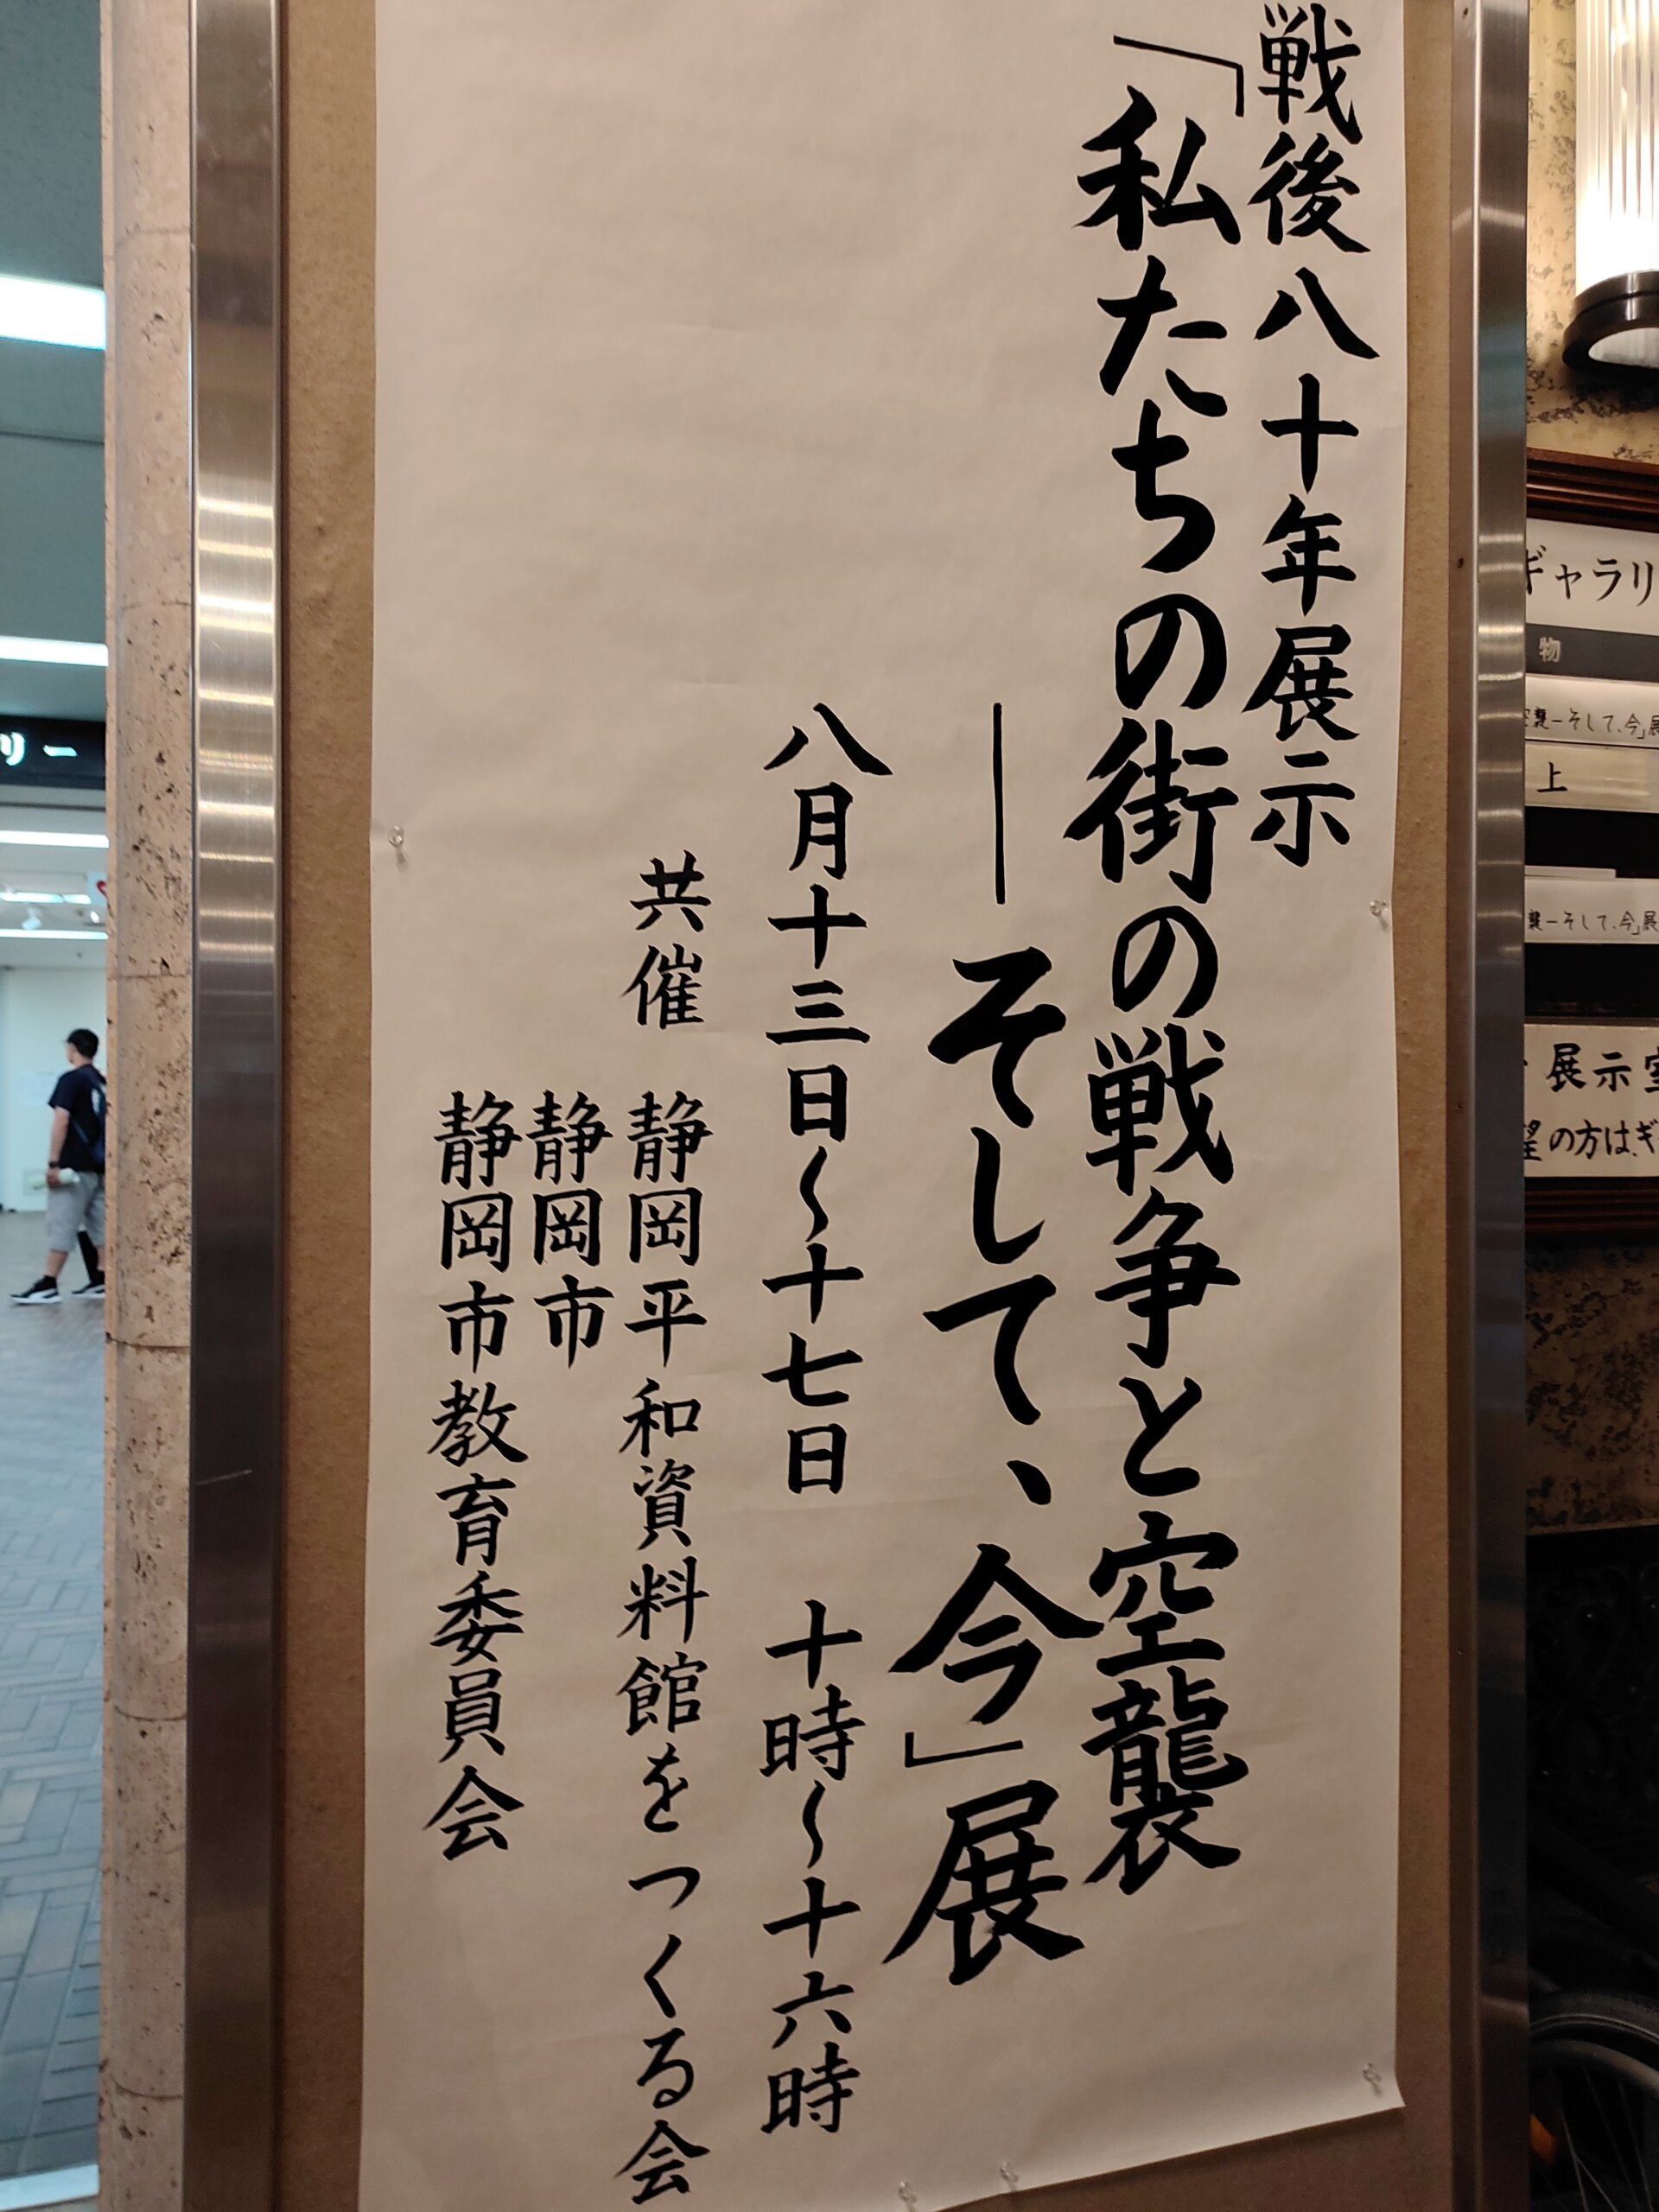 戦後八十年展示
「私たちの街の戦争と空襲
―そして、今」展
八月十三日〜十七日 十時〜十六時
共催 静岡平和資料館をつくる会
静岡市
静岡市教育委員会
ギャラリ
物
襲―そして、今」展
上
襲―そして、今」展
展示室
望の方は、ギ
リー